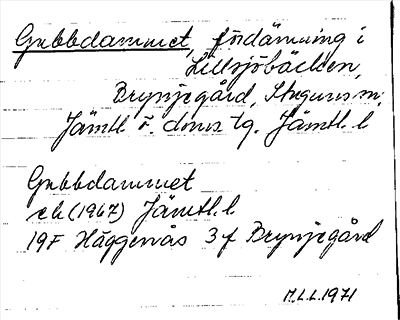 Gubbdammet, fördämning i
Lillsjöbäcken,
Brynjegård, Stuguns sn,
Jämtl. ö. doms tg. Jämtl. l
Gubbdammet
ek (1967) Jämtl. l.
19F Häggenås 3f Brynjegård
M.L.L. 1971